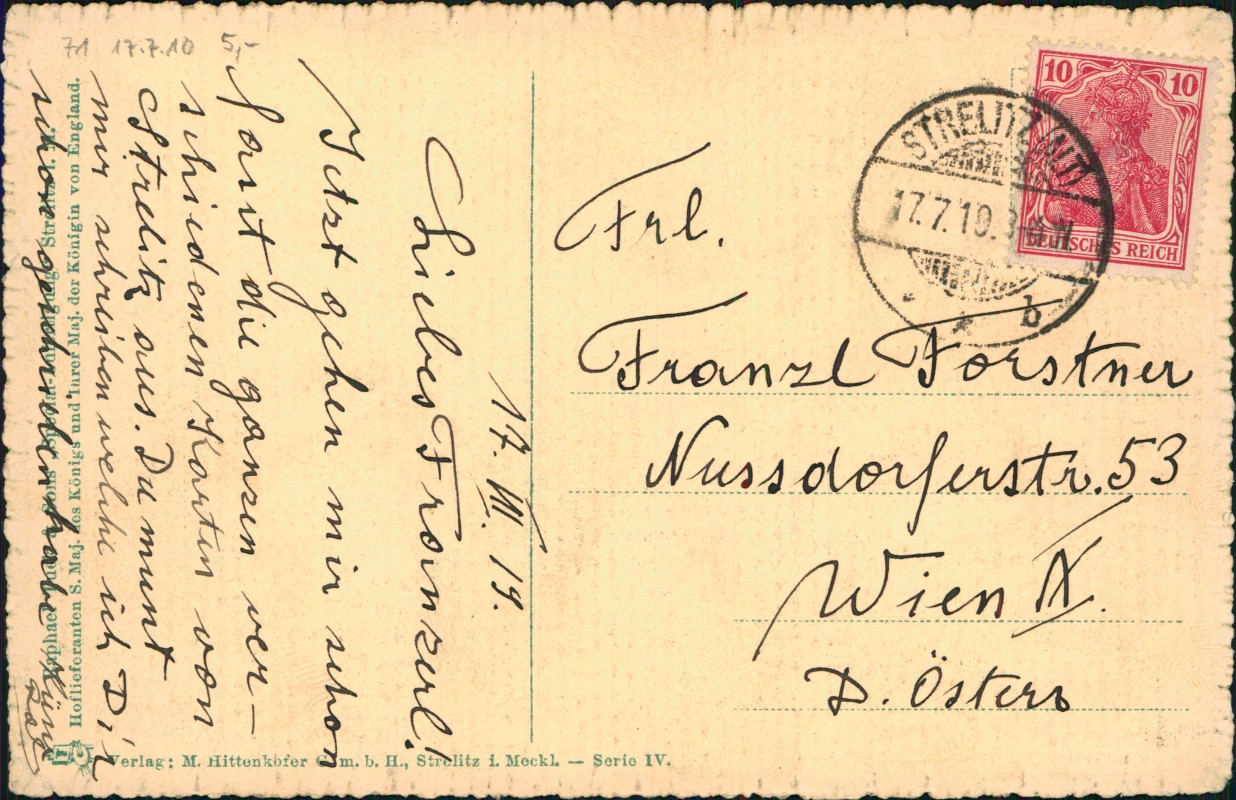 71 17.7.10 5,-
17. VII. 19.
Liebes Franzerl!
Jetzt gehen mir schon
fast die ganzen ver-
schiedenen Karten von
Strelitz aus. Du mußt
mir schreiben welche ich Dir
schon geschrieben habe
Raphael
Hoflieferanten S. Maj. des Königs und Ihrer Maj. der Königin von England.
Verlag: M. Hittenkofer G.m.b.H., Strelitz i. Meckl. — Serie IV.
10 10
DEUTSCHES REICH
STRELITZ (ALT)
17.7.10.
* b
Frl.
Franzl Forstner
Nussdorferstr. 53
Wien
D. Österr